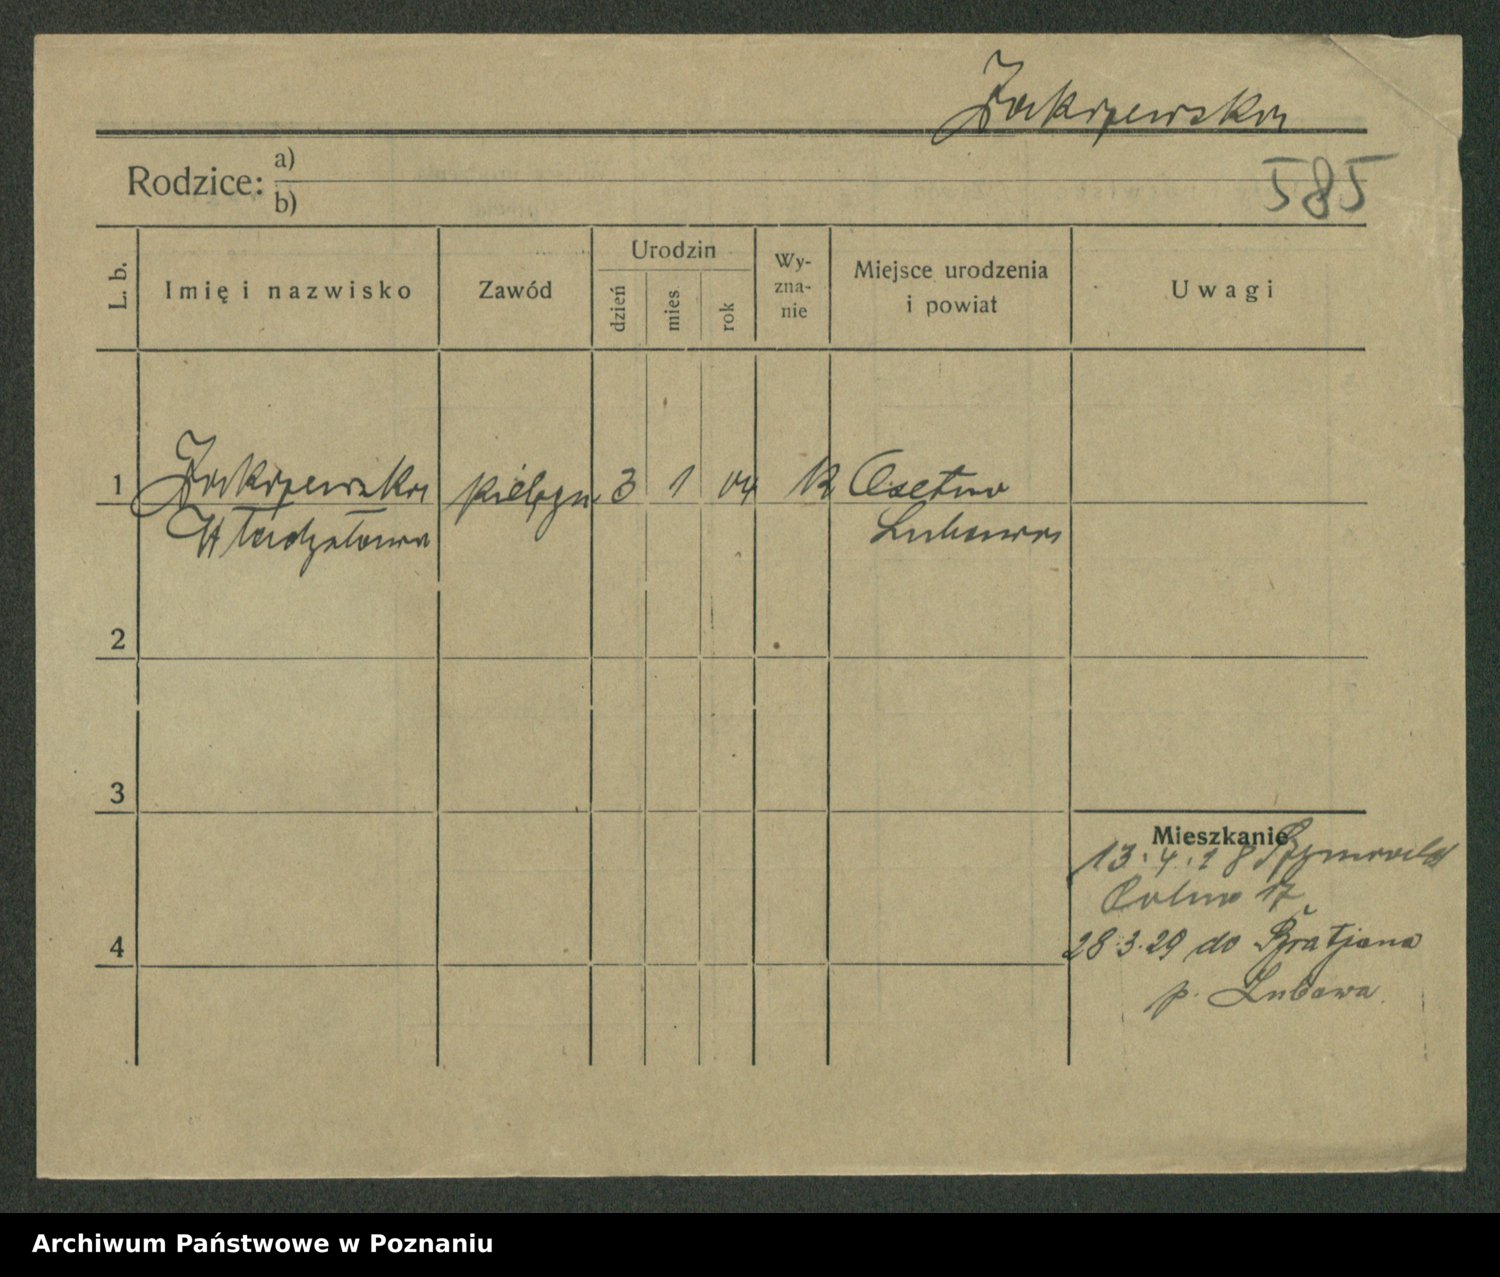 Zakrzewska
Rodzice: a)
b)
585
L. b.
Imię i nazwisko
Zawód
Urodzin
dzień
mies
rok
Wy-
zna-
nie
Miejsce urodzenia
i powiat
Uwagi
1 Zakrzewska pielęgn. 3 1 04 k Osetno
Władysława Lubawa
2
3
Mieszkanie
13.4.28
Polna 17
4
28.3.29 do Bratjana
p. Lubawa
Archiwum Państwowe w Poznaniu